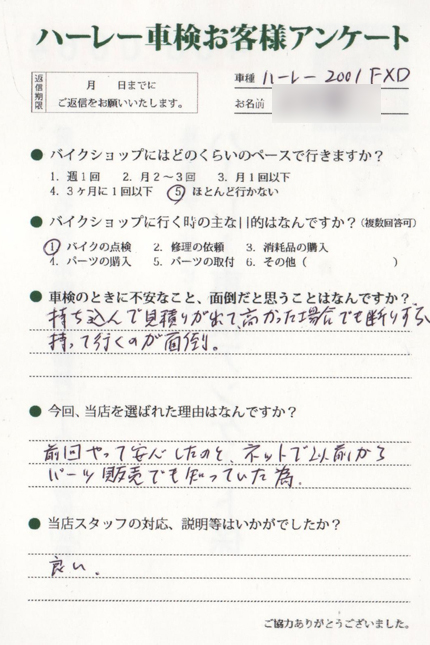 ハーレー車検お客様アンケート
返信期限
月 日までに
ご返信をお願いいたします。
車種 ハーレー 2001 FXD
お名前
● バイクショップにはどのくらいのペースで行きますか？
1. 週1回 2. 月2〜3回 3. 月1回以下
4. 3ヶ月に1回以下 ⑤ ほとんど行かない
● バイクショップに行く時の主な目的はなんですか？（複数回答可）
① バイクの点検 2. 修理の依頼 3. 消耗品の購入
4. パーツの購入 5. パーツの取付 6. その他（ ）
● 車検のときに不安なこと、面倒だと思うことはなんですか？
持ち込んで見積りが出て、高かった場合でも断りずらい、
持って行くのが面倒。
● 今回、当店を選ばれた理由はなんですか？
前回やって安心したのと、ネットで以前から
パーツ販売でも知っていた為。
● 当店スタッフの対応、説明等はいかがでしたか？
良い。
ご協力ありがとうございました。